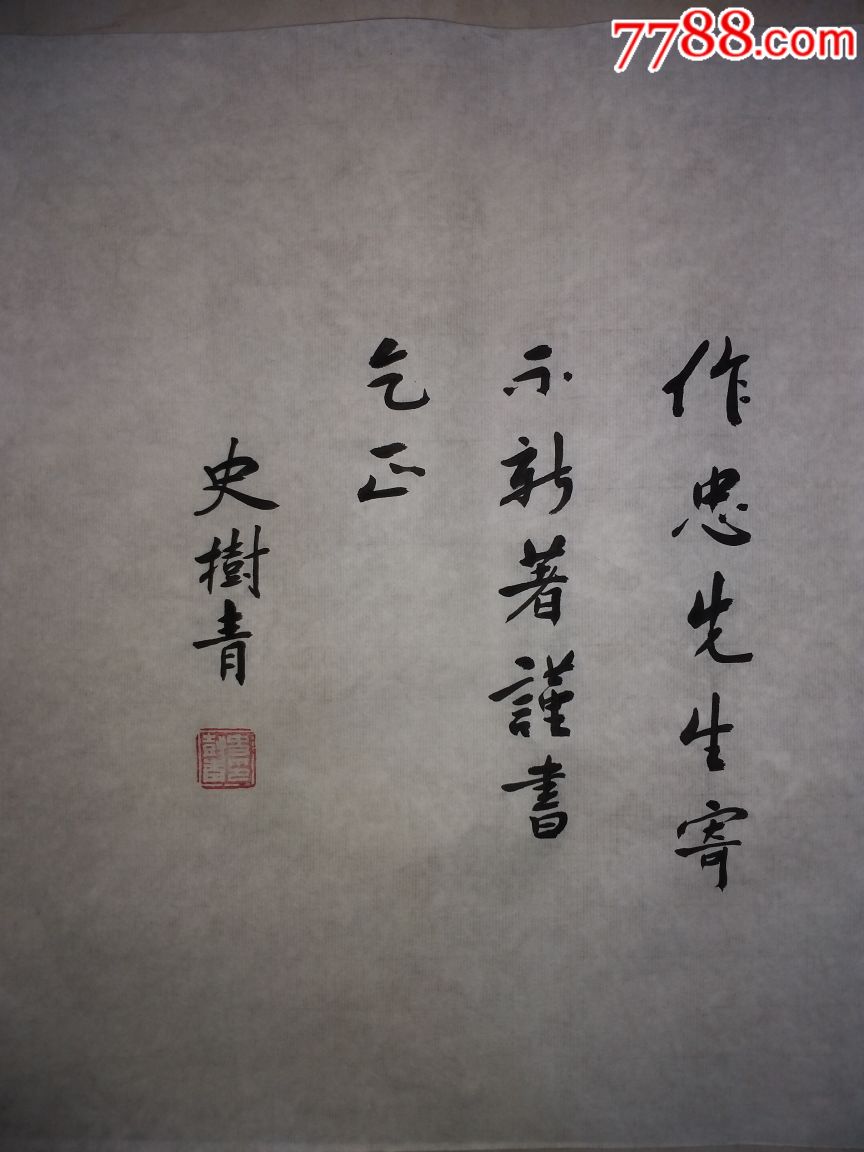 7788.com
作忠先生寄
示新著謹書
乞正
史樹青